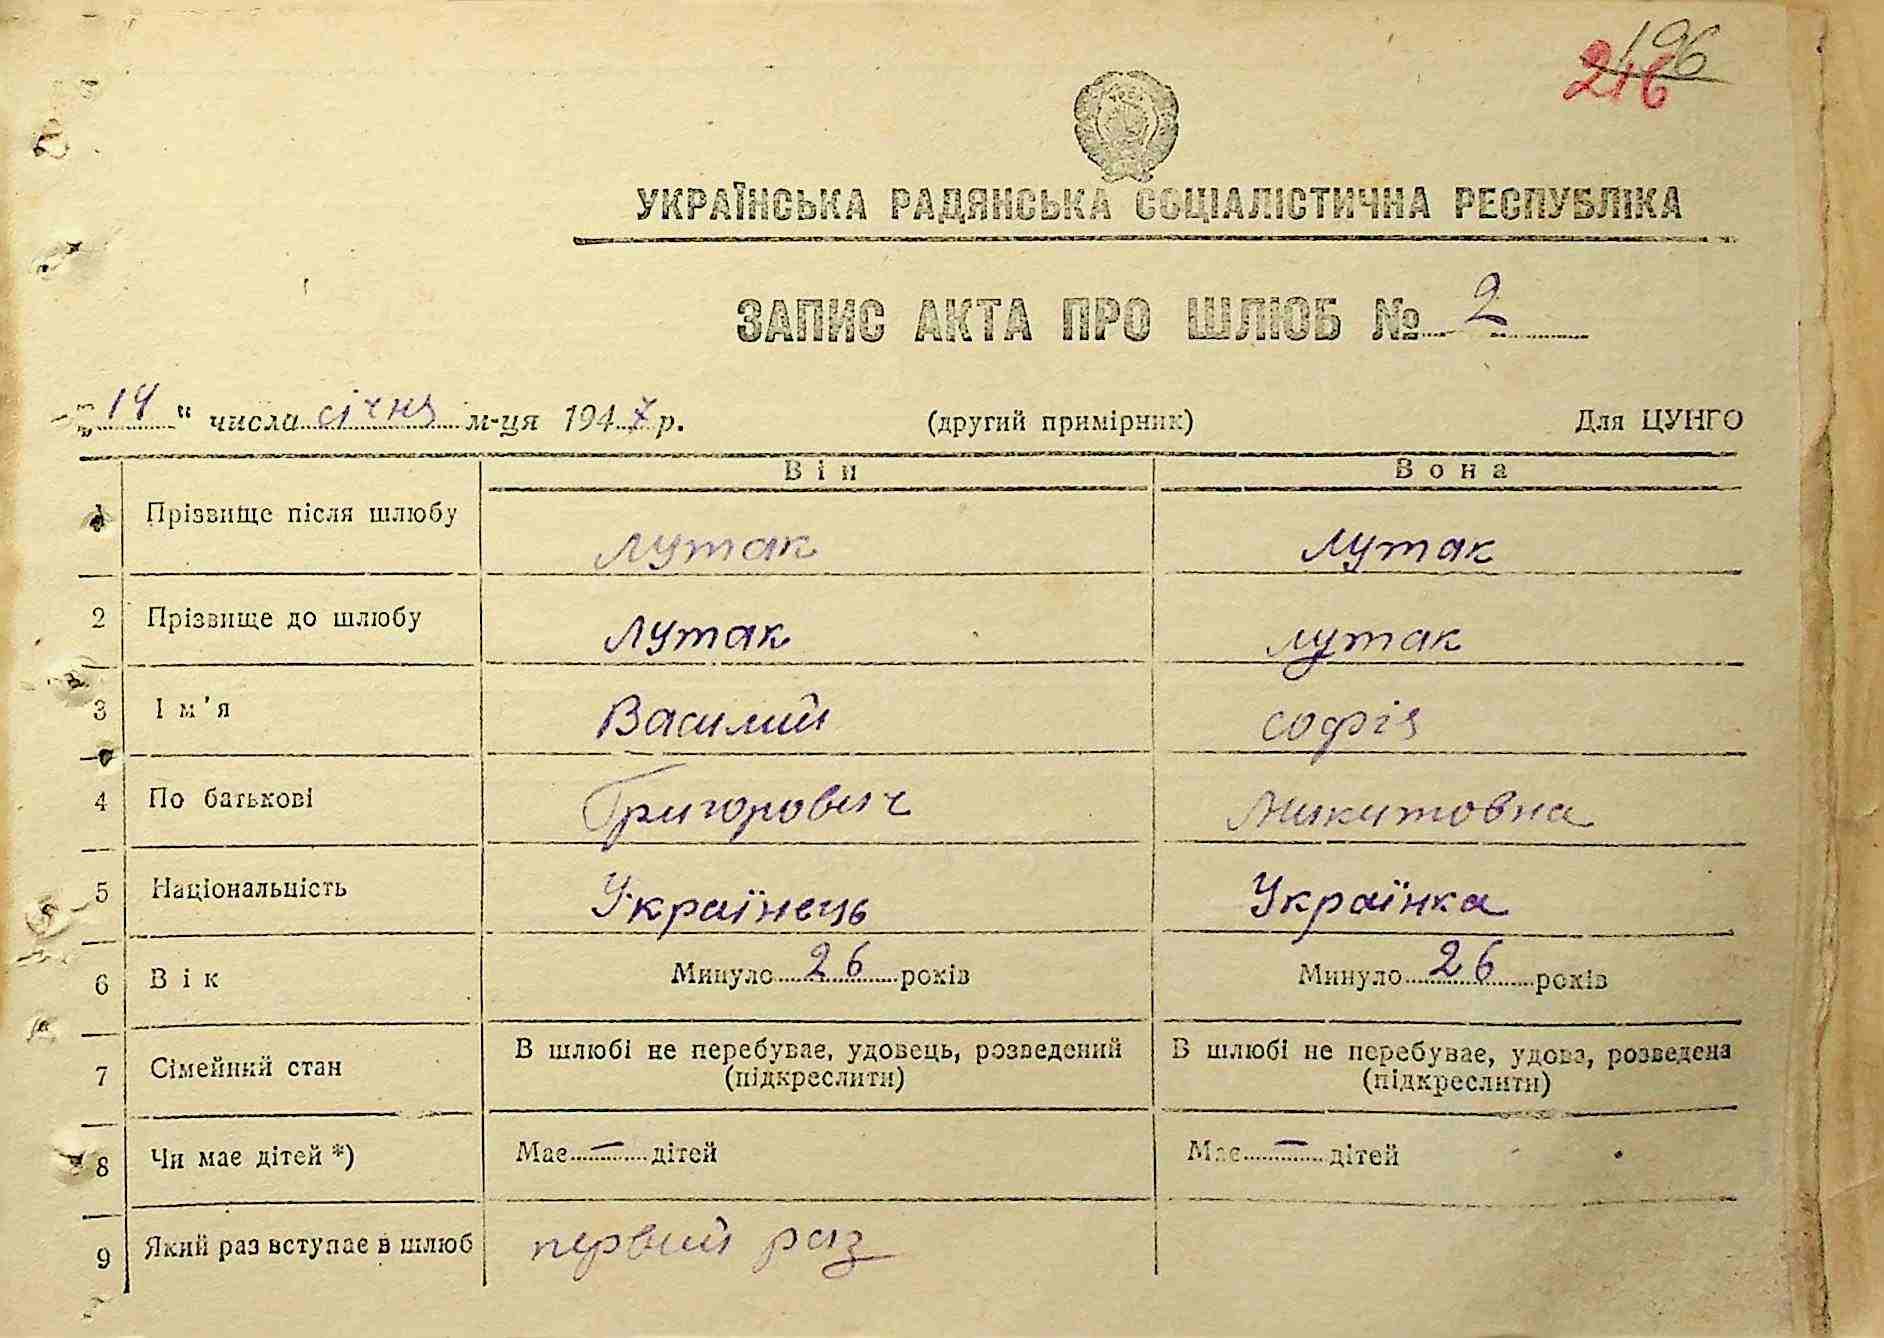 196
216
УКРАЇНСЬКА РАДЯНСЬКА СОЦІАЛІСТИЧНА РЕСПУБЛІКА
ЗАПИС АКТА ПРО ШЛЮБ № 2
„14“ числа січня м-ця 1947 р. (другий примірник) Для ЦУНГО
Він Вона
1 Прізвище після шлюбу Лутак Лутак
2 Прізвище до шлюбу Лутак Лутак
3 Ім'я Василий Софія
4 По батькові Григорович Микитовна
5 Національність Українець Українка
6 Вік Минуло 26 років Минуло 26 років
7 Сімейний стан В шлюбі не перебуває, удовець, розведений В шлюбі не перебуває, удова, розведена
(підкреслити) (підкреслити)
8 Чи має дітей *) Має — дітей Має — дітей
9 Який раз вступає в шлюб первий раз